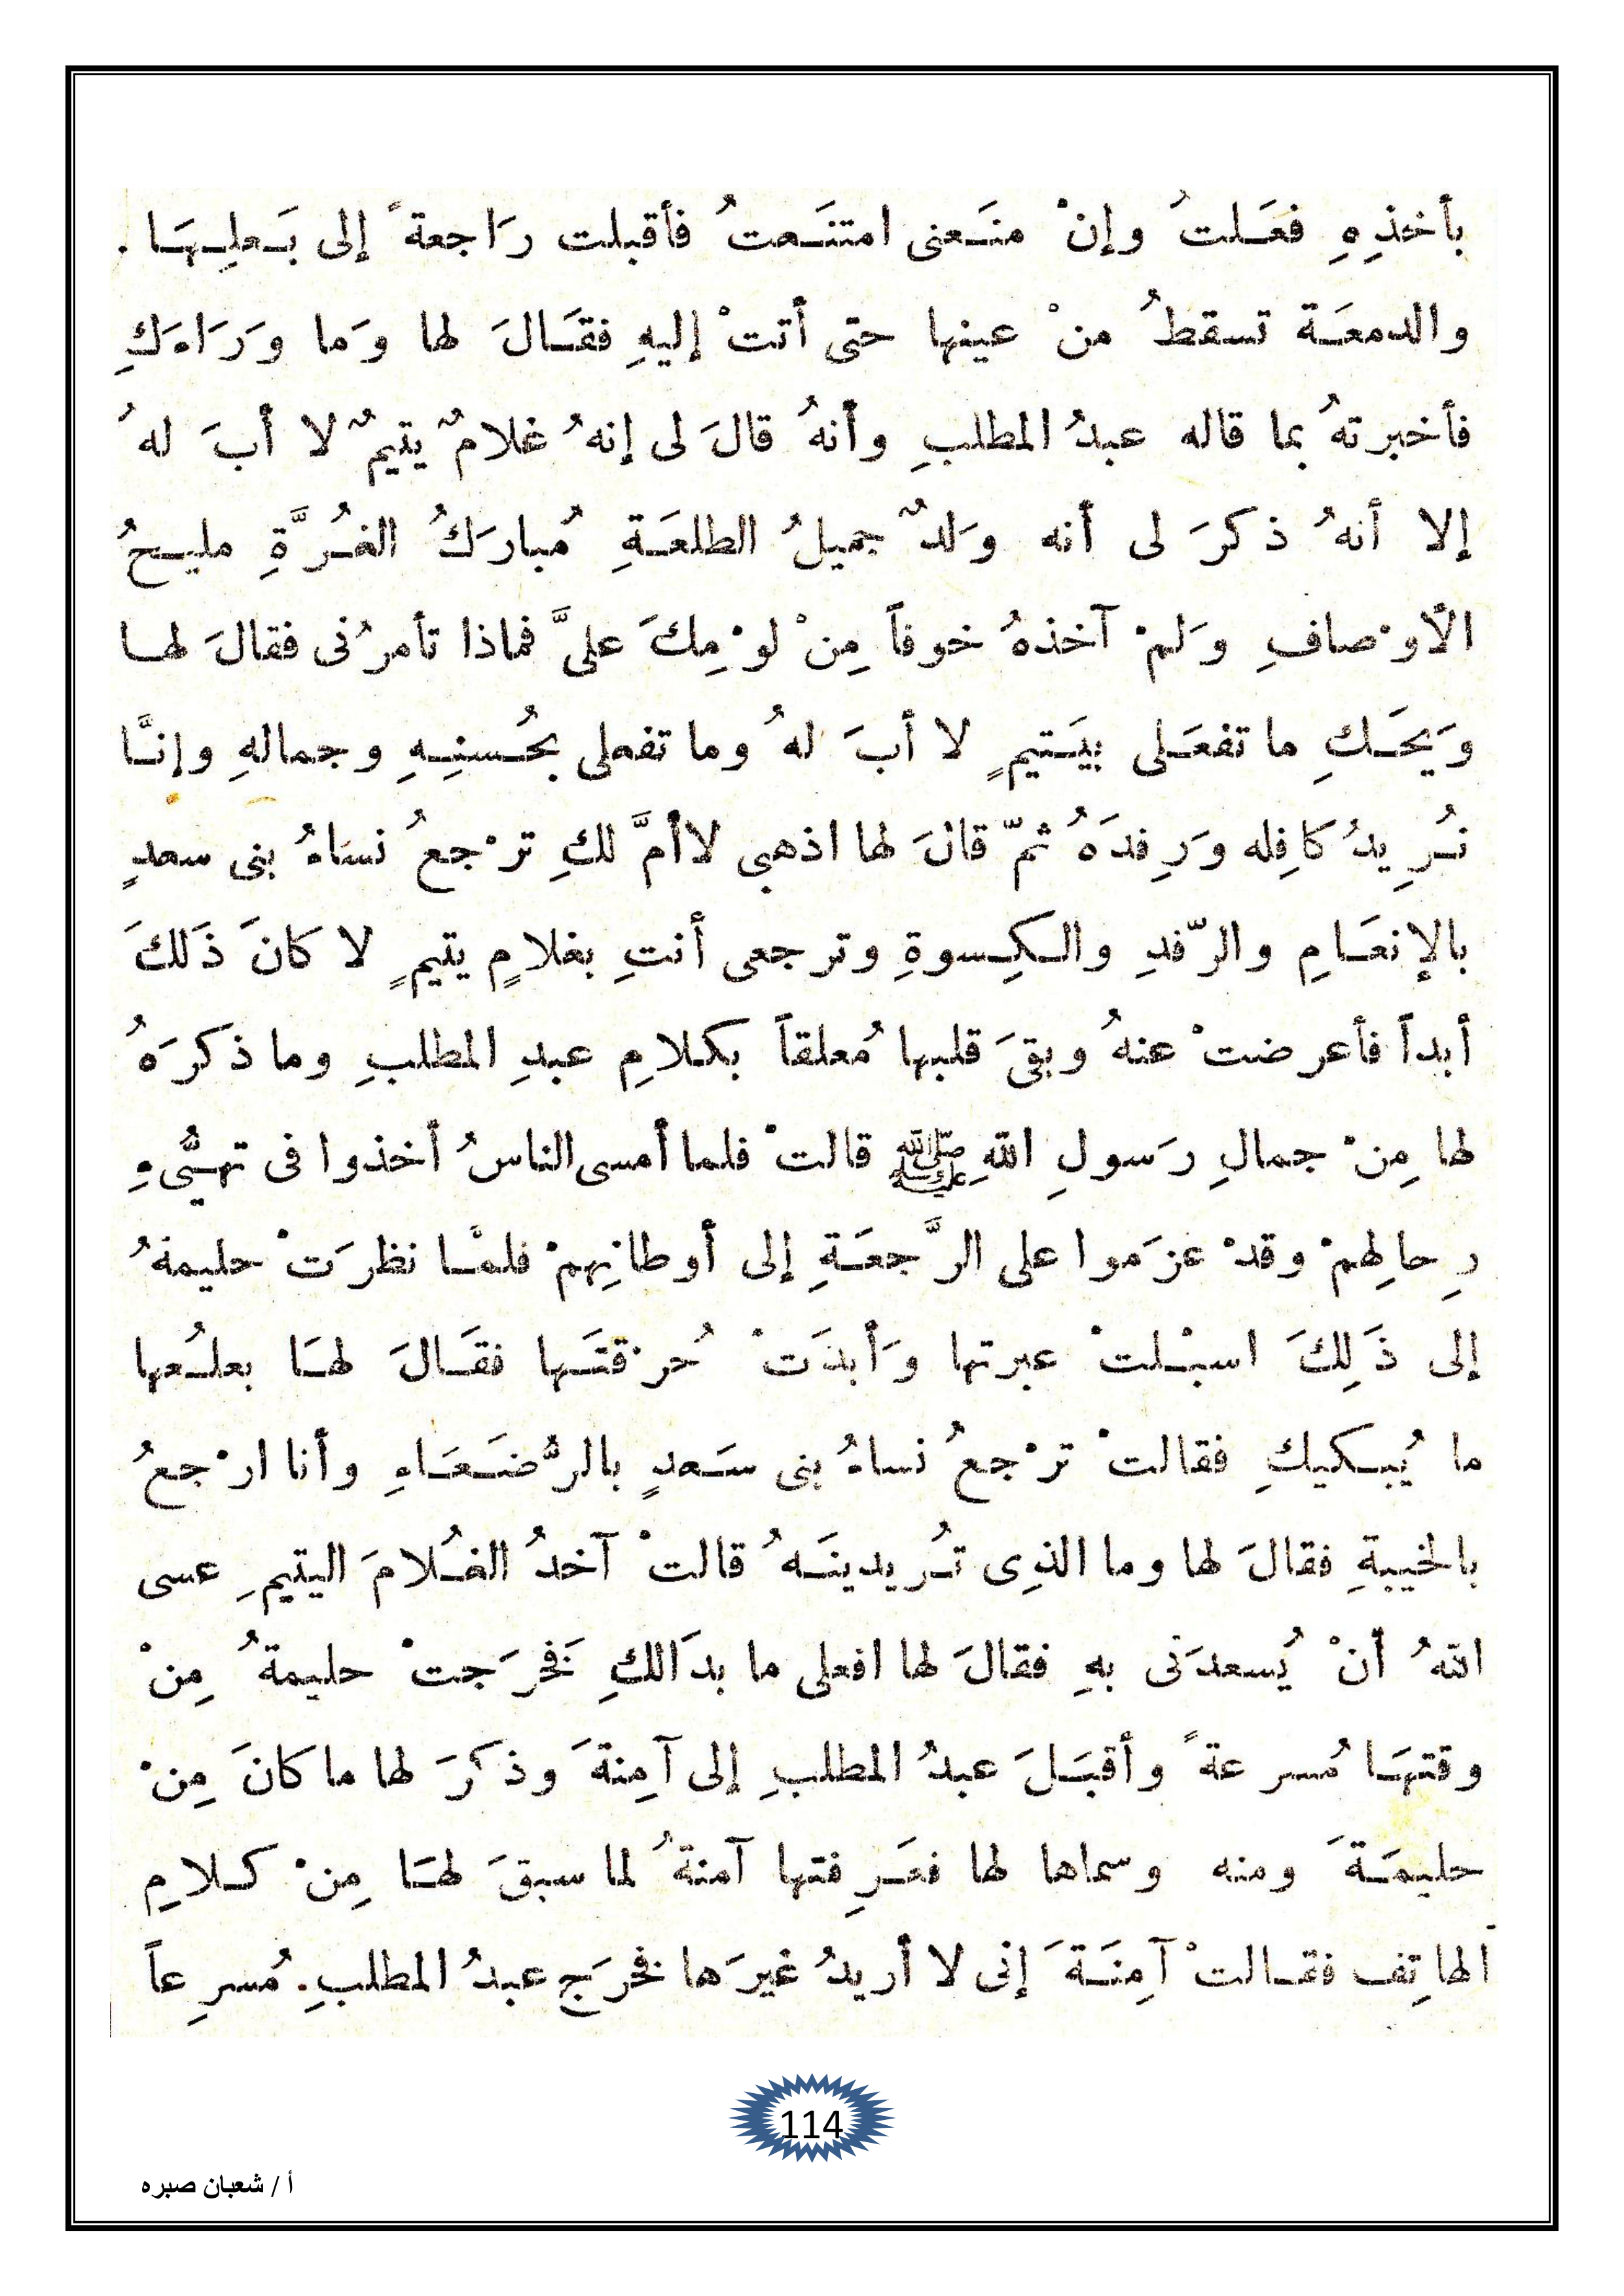 بأخذِهِ فعَلتُ وإنْ منَعنى امتنَعتُ فأقبلت رَاجعةً إلى بَعلِهَا .
والدمعَة تسقطُ منْ عينها حتى أتتْ إليهِ فقَالَ لها وَما وَرَاءَكِ
فأخبرتهُ بما قاله عبدُ المطلبِ وأنهُ قالَ لى إنهُ غلامٌ يتيمٌ لا أبَ لهُ
إلا أنهُ ذكرَ لى أنه وَلدٌ جميلُ الطلعَةِ مُبارَكُ الغُرَّةِ مليحُ
الأوْصافِ وَلمْ آخذهُ خوفاً مِنْ لوْمِكَ علىَّ فماذا تأمرُنى فقالَ لها
وَيحَكِ ما تفعَلى بيَتيمٍ لا أبَ لهُ وما تفعلى بحُسنِهِ وجمالهِ وإنَّا
نُرِيدُ كافِله وَرِفدَهُ ثمّ قالَ لها اذهبى لاأمَّ لكِ ترْجعُ نسَاءُ بنى سعدٍ
بالإنعَامِ والرّفدِ والكِسوةِ وترجعى أنتِ بغلامٍ يتيمٍ لا كانَ ذَلكَ
أبداً فأعرضتْ عنهُ وبقىَ قلبها مُعلقاً بكلامِ عبدِ المطلبِ وما ذكرَهُ
لها مِنْ جمالِ رَسولِ اللهِ ﷺ قالتْ فلما أمسى الناسُ أخذوا فى تهيُّىءِ
رِحالِهمْ وقدْ عزَموا على الرَّجعَةِ إلى أوطانِهمْ فلمَّا نظرَتْ حليمةُ
إلى ذَلِكَ اسبْلتْ عبرتها وَأبدَتْ حُرْقتَها فقَالَ لهَا بعلُعها
ما يُبكيكِ فقالتْ ترْجعُ نساءُ بنى سَعدٍ بالرُّضَعَاءِ وأنا ارْجعُ
بالخيبةِ فقالَ لها وما الذِى تُريدينَهُ قالتْ آخدُ الغُلامَ اليتيمِ عسى
اللهُ أنْ يُسعدَنى بهِ فقالَ لها افعلى ما بدَالكِ فخرَجتْ حليمةُ مِنْ
وقتهَا مُسرعةً وأقبَلَ عبدُ المطلبِ إلى آمِنةَ وذكرَ لها ما كانَ مِنْ
حليمَةَ ومنه وسماها لها فعَرِفتها آمنةُ لما سبقَ لهَا مِنْ كلامِ
الهاتِف فقالتْ آمِنَةَ إنى لا أريدُ غيرَها فخرَج عبدُ المطلبِ. مُسرِعاً
114
أ / شعبان صبره